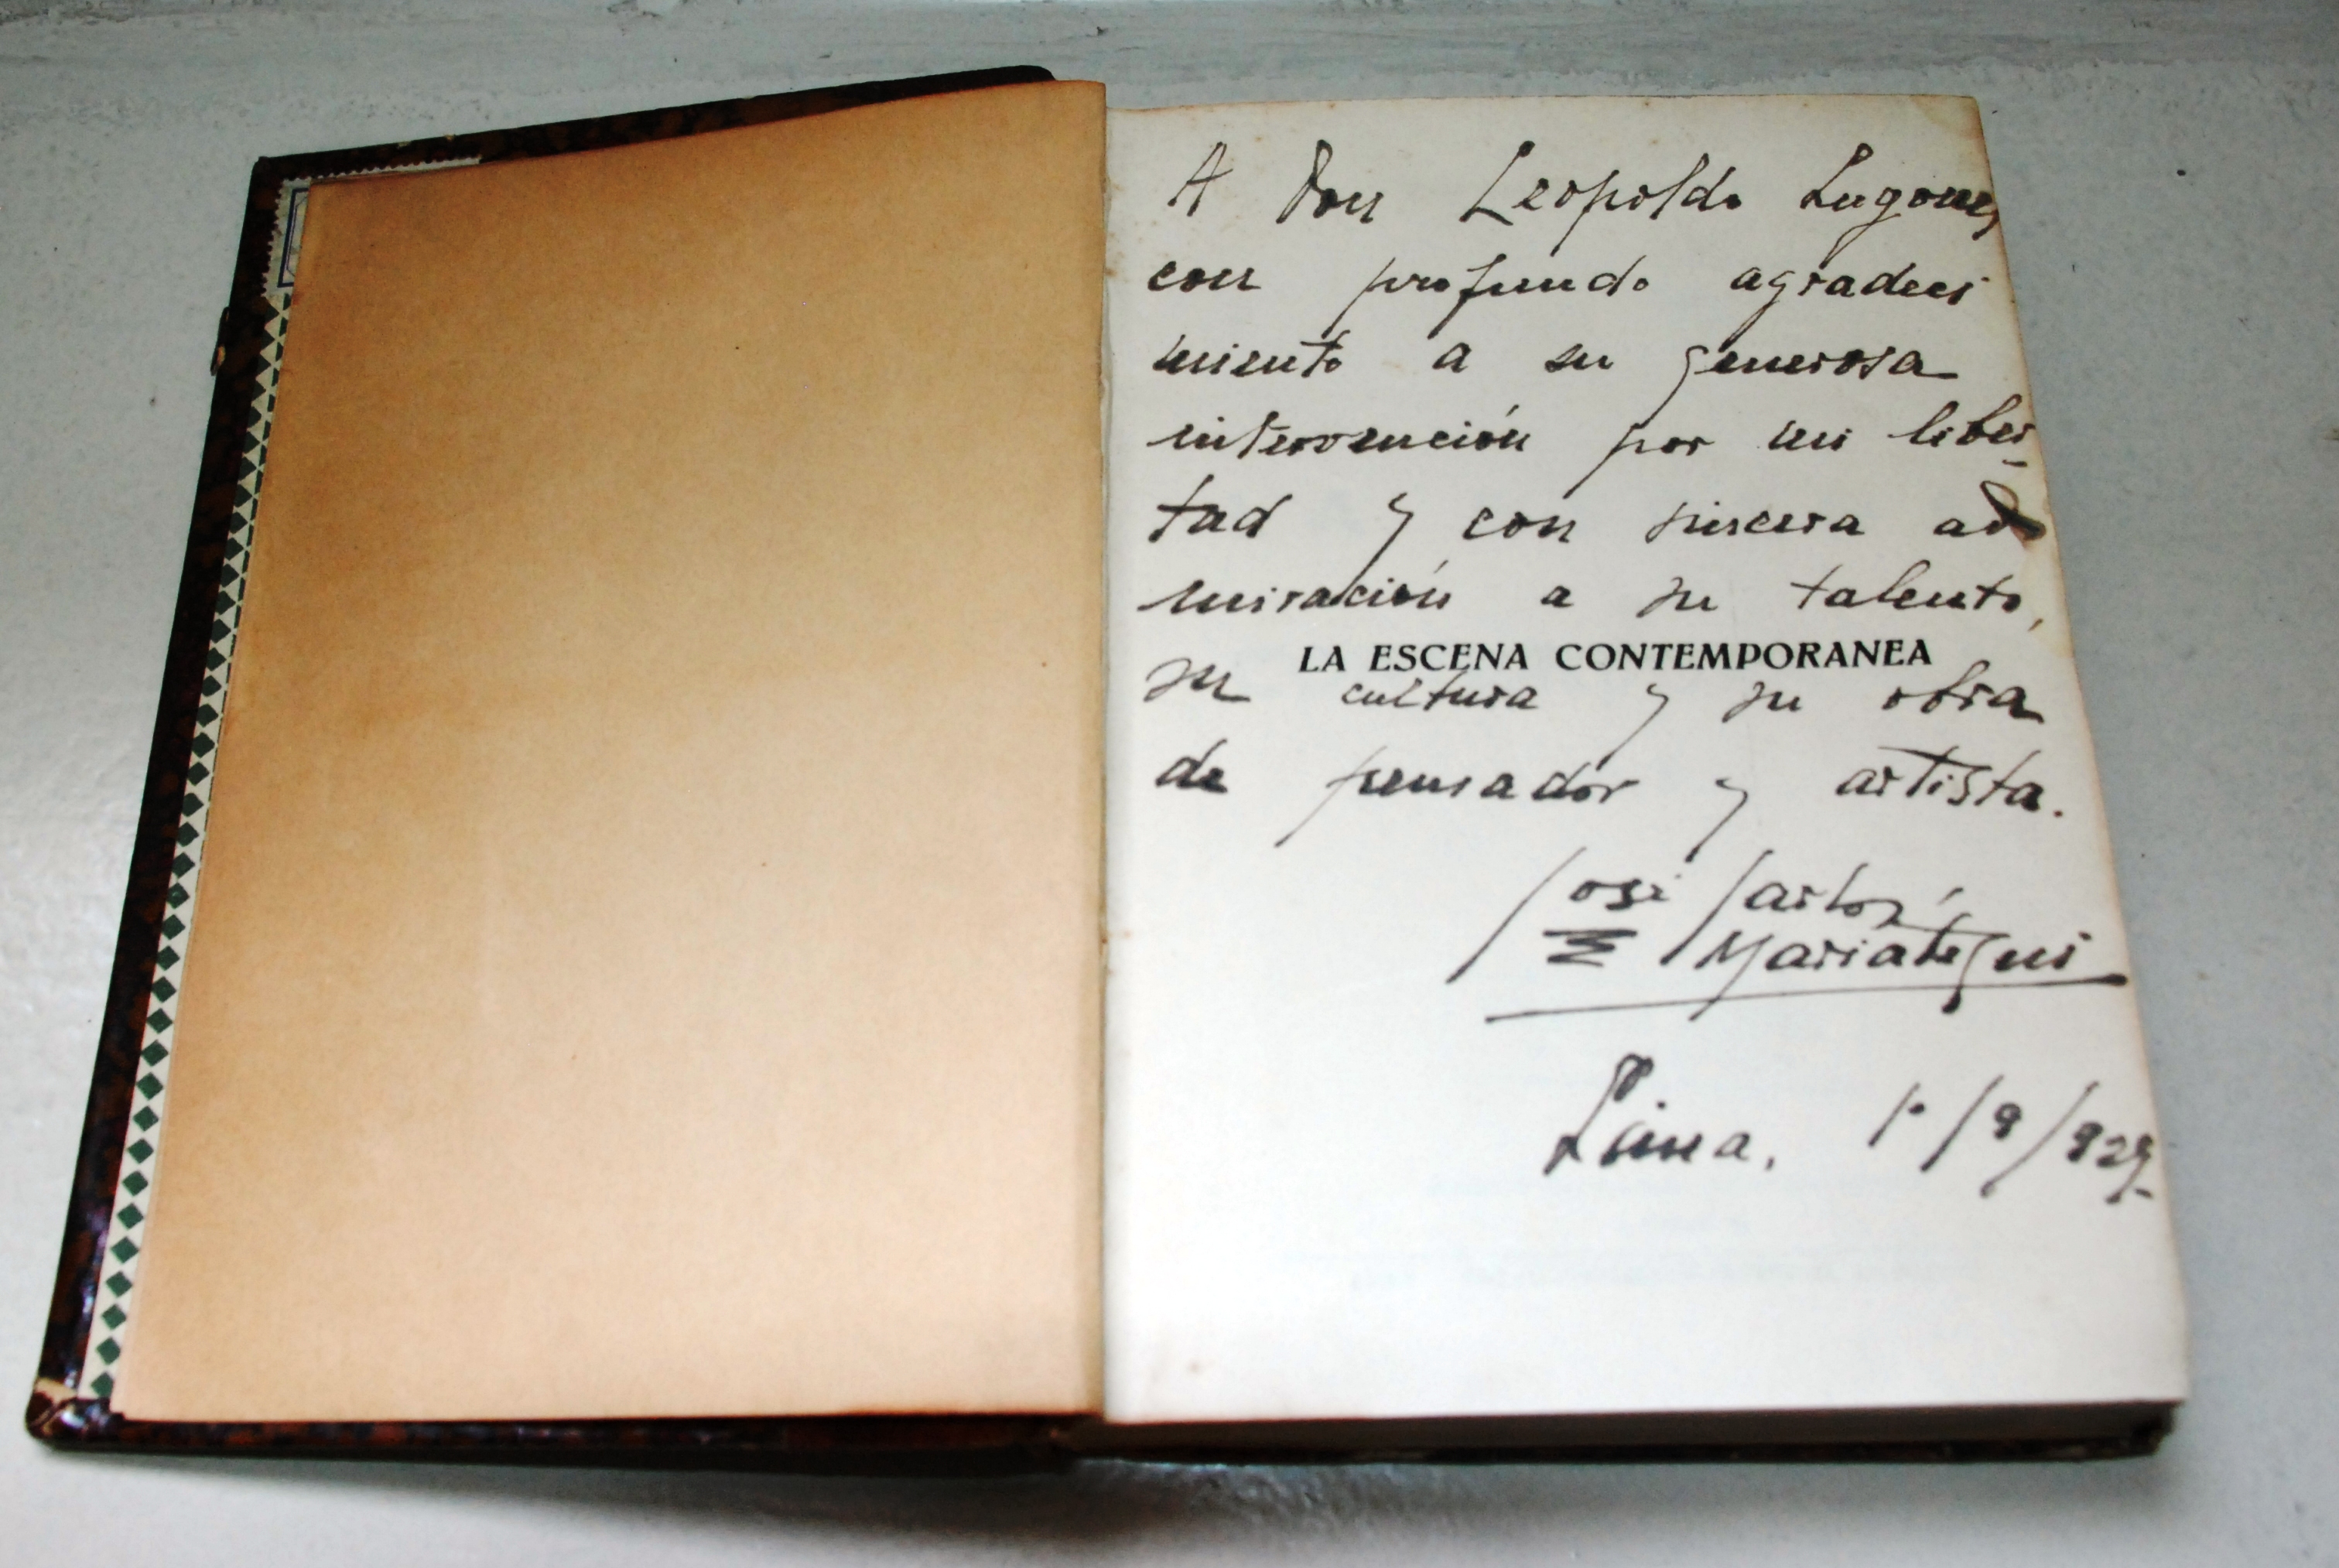 A Don Leopoldo Lugones,
con profundo agradeci
miento a su generosa
intervención por mi liber-
tad y con sincera ad
miración a su talento,
LA ESCENA CONTEMPORANEA
su cultura y su obra
de pensador y artista.
José Carlos
Mariátegui
Lima, 1º/9/